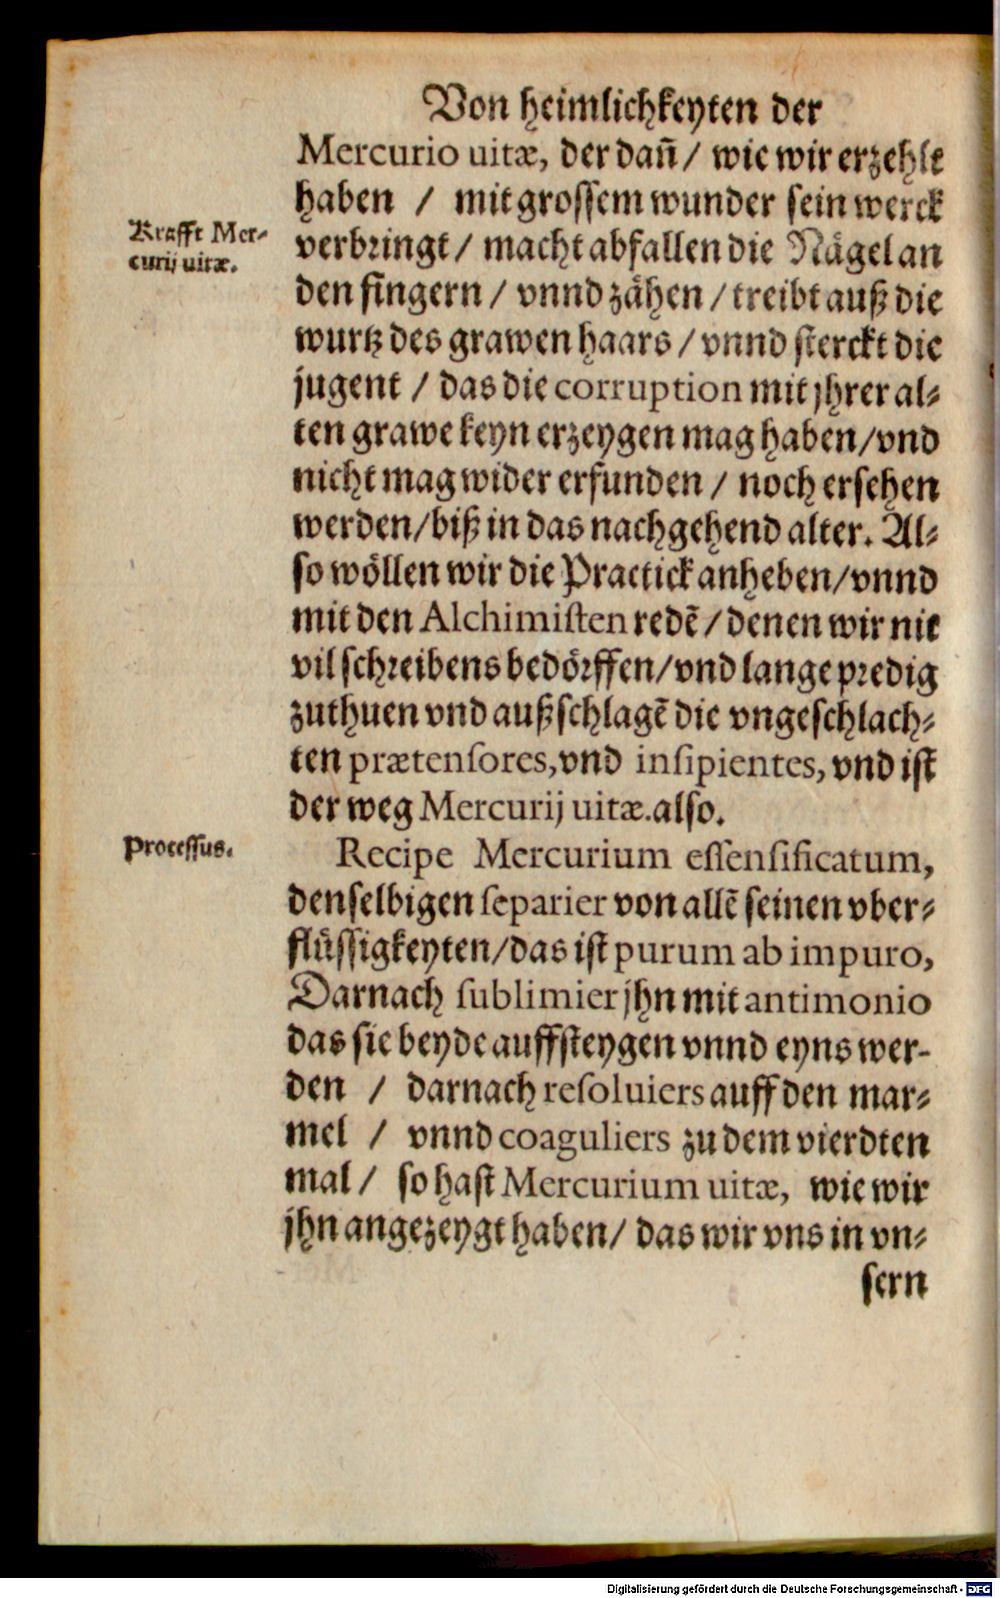 Von heimlichkeyten der
Mercurio uitæ, der dañ / wie wir erzehlt
haben / mit grossem wunder sein werck
Krafft Mer-
curij uitæ.
verbringt / macht abfallen die Nägel an
den fingern / vnnd zähen / treibt auß die
wurtz des grawen haars / vnnd sterckt die
jugent / das die corruption mit jhrer al-
ten grawe keyn erzeygen mag haben / vnd
nicht mag wider erfunden / noch ersehen
werden / biß in das nachgehend alter. Al-
so wöllen wir die Practick anheben / vnnd
mit den Alchimisten redẽ / denen wir nit
vil schreibens bedörffen / vnd lange predig
zuthuen vnd außschlagẽ die vngeschlach-
ten prætensores, vnd insipientes, vnd ist
der weg Mercurij uitæ. also.
Processus.
Recipe Mercurium essensificatum,
denselbigen separier von allẽ seinen vber-
flüssigkeyten / das ist purum ab impuro,
Darnach sublimier jhn mit antimonio
das sie beyde auffsteygen vnnd eyns wer-
den / darnach resoluiers auff den mar-
mel / vnnd coaguliers zu dem vierdten
mal / so hast Mercurium uitæ, wie wir
jhn angezeygt haben / das wir vns in vn-
sern
Digitalisierung gefördert durch die Deutsche Forschungsgemeinschaft - DFG